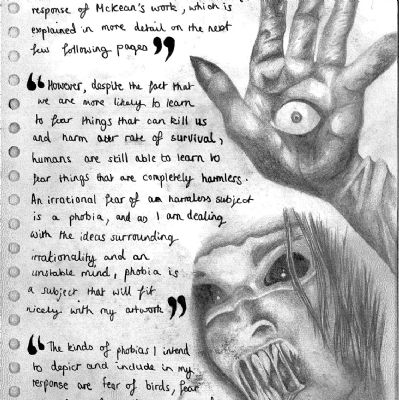 response of McKean's work, which is
explained in more detail on the next
few following pages ”
“ However, despite the fact that
we are more likely to learn
to fear things that can kill us
and harm our rate of survival,
humans are still able to learn to
fear things that are completely harmless.
An irrational fear of an harmless subject
is a phobia, and as I am dealing
with the ideas surrounding
irrationality and an
unstable mind, phobia is
a subject that will fit
nicely with my artwork ”
“ The kinds of phobias I intend
to depict and include in my
response are fear of birds, fear